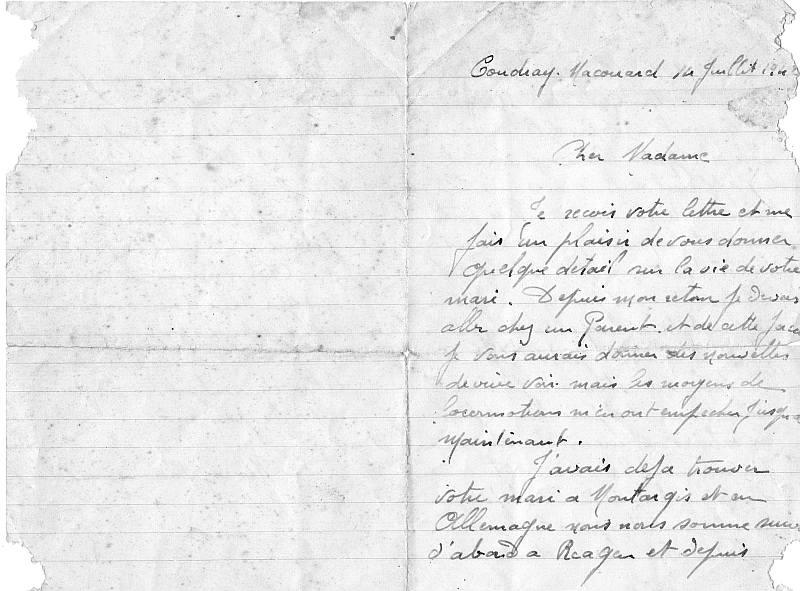 Coudray-Macouard 14 Juillet 19
Cher Madame
Je recois votre lettre et me
fais un plaisir de vous donner
quelque détail sur la vie de votre
mari. Depuis mon retour je devais
aller chez un Parent. et de cette
Je vous aurais donner des nouvelles
de vive voix mais les moyens de
locomotions m'en ont empecher jusqu'a
maintenant.
J'avais deja trouver
votre mari a Montargis et en
Allemagne nous nous somme
d'abord a et depuis